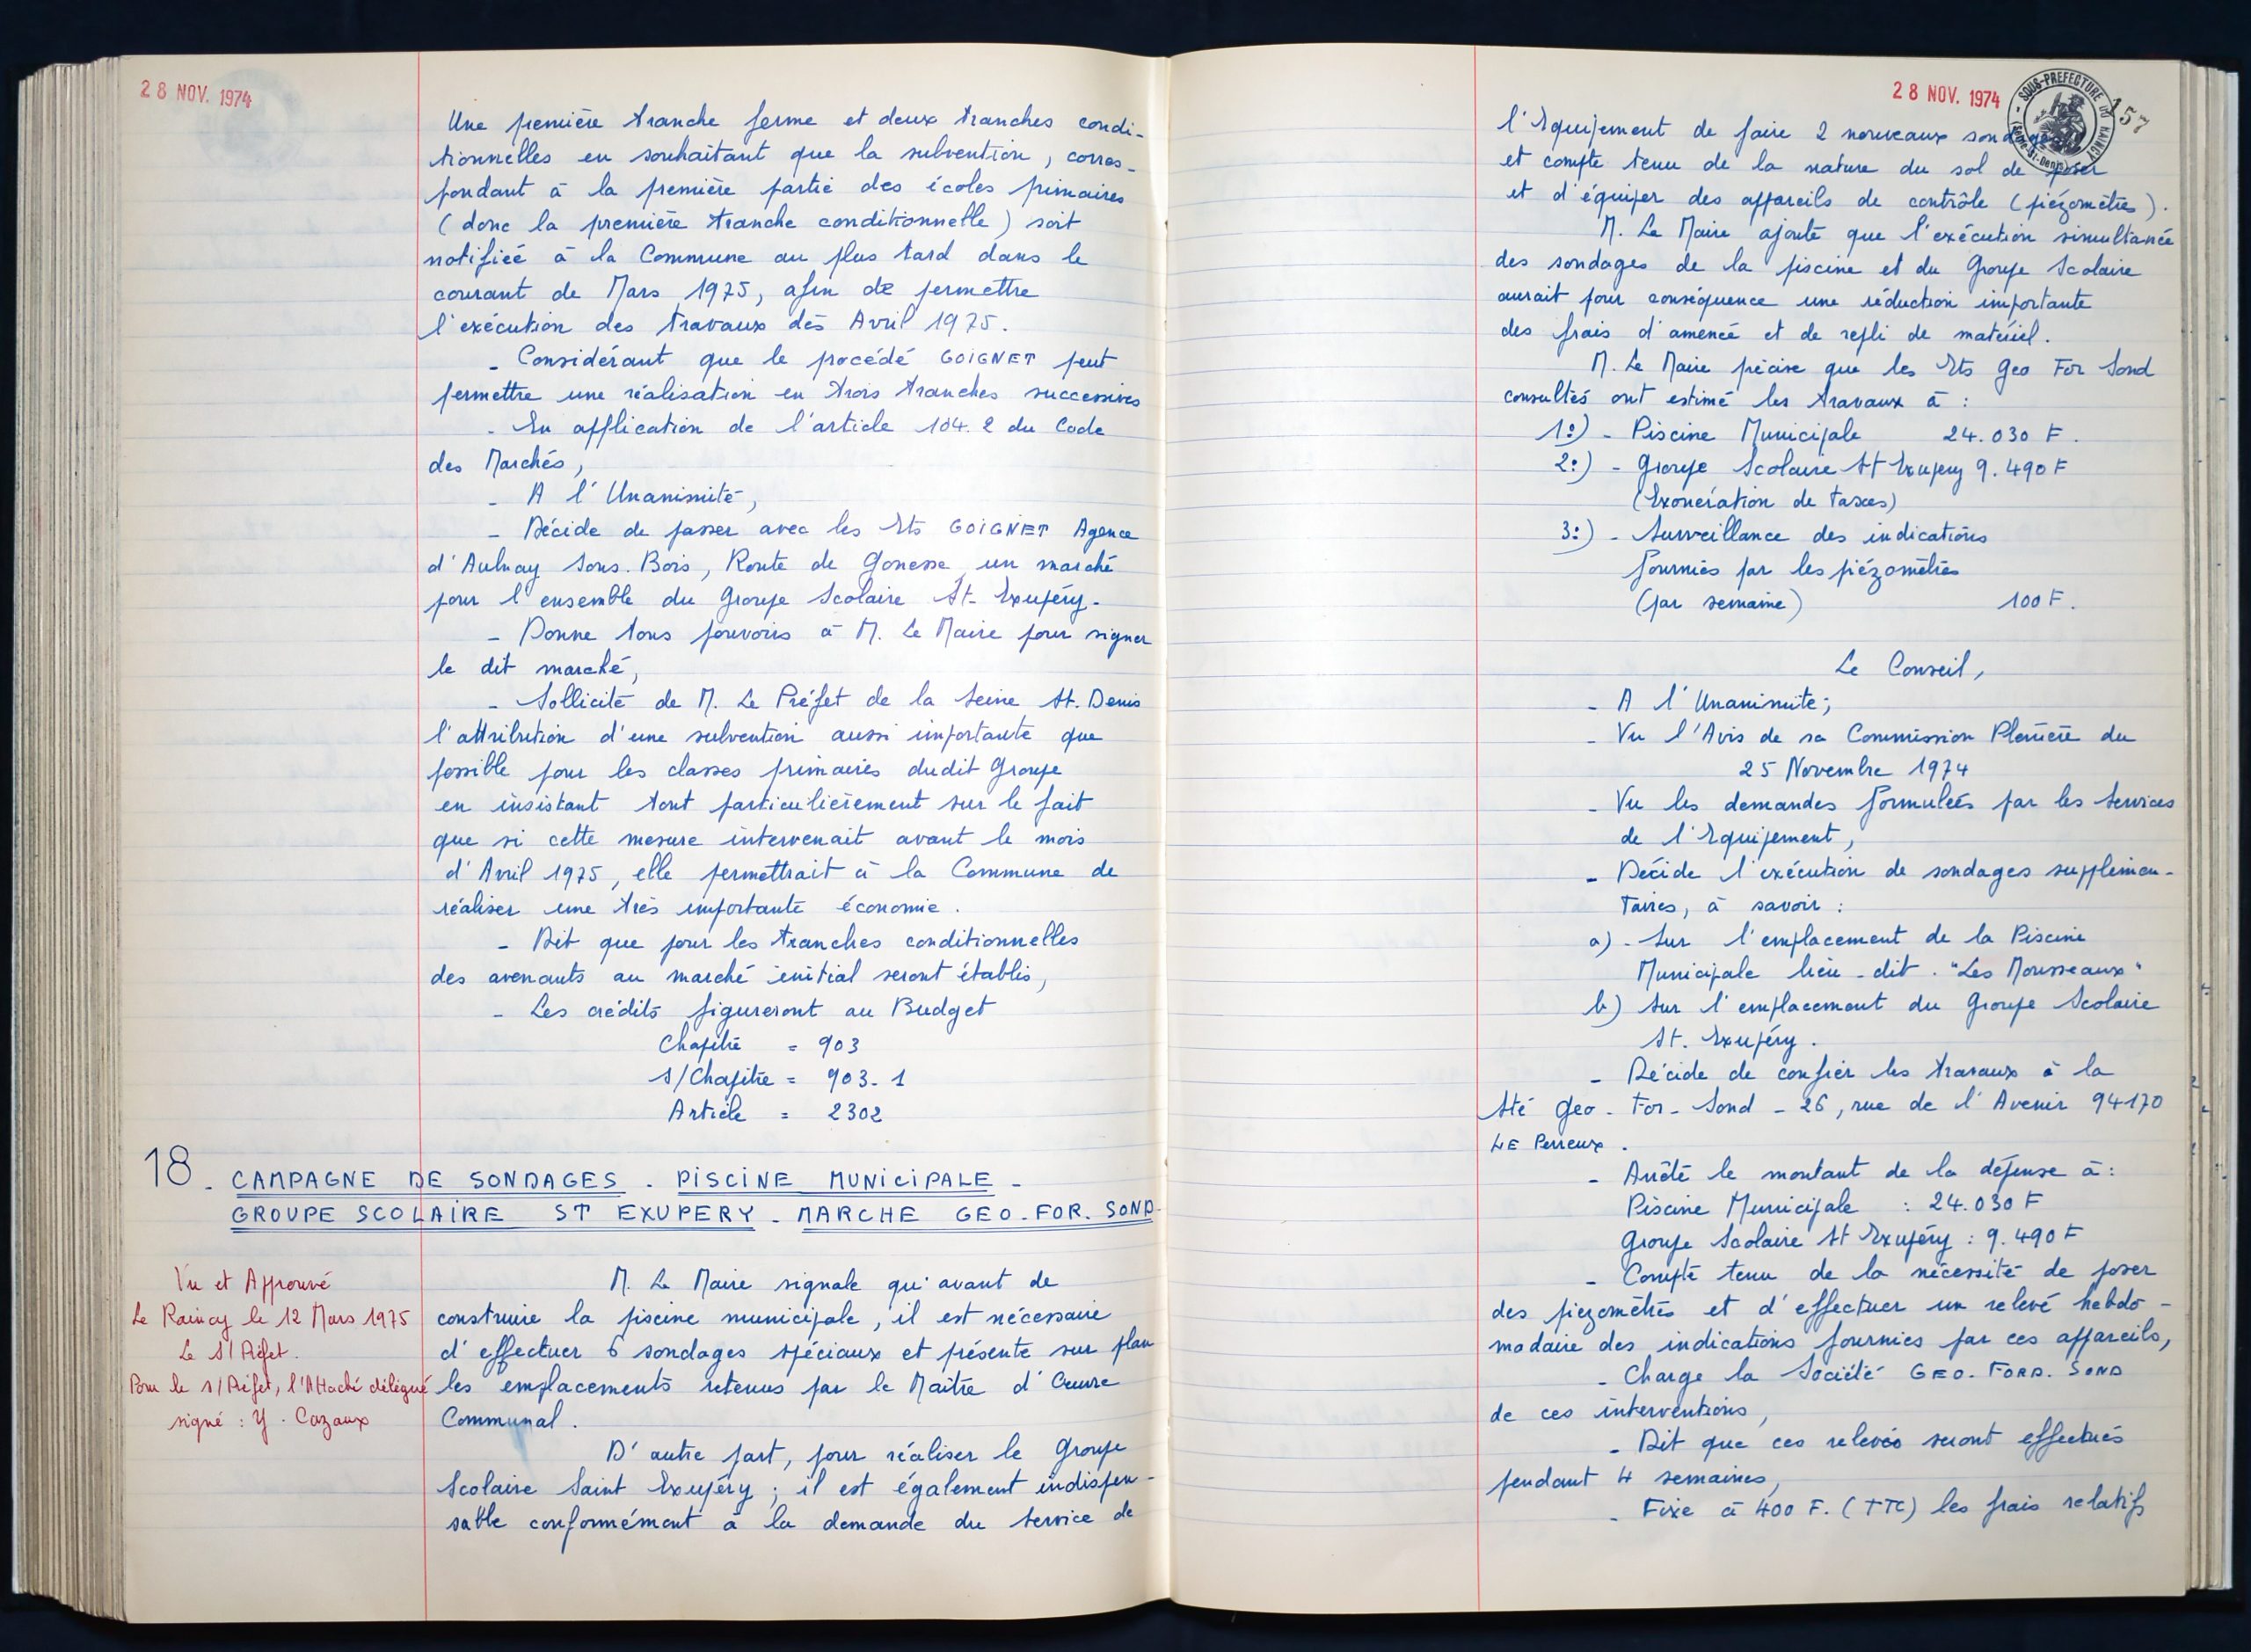 28 NOV. 1974
Une première tranche ferme et deux tranches condi-
tionnelles en souhaitant que la subvention, corres-
pondant à la première partie des écoles primaires
(donc la première tranche conditionnelle) soit
notifiée à la Commune au plus tard dans le
courant de Mars 1975, afin de permettre
l'exécution des travaux dès Avril 1975.
- Considérant que le procédé COIGNET peut
permettre une réalisation en trois tranches successives
- En application de l'article 104.2 du Code
des Marchés,
- A l'Unanimité,
- Décide de passer avec les Ets COIGNET Agence
d'Aulnay Sous. Bois, Route de Gonesse, un marché
pour l'ensemble du Groupe Scolaire St- Exupéry-
- Donne tous pouvoirs à M. Le Maire pour signer
le dit marché,
- Sollicite de M. Le Préfet de la Seine St. Denis
l'attribution d'une subvention aussi importante que
possible pour les classes primaires dudit Groupe
en insistant tout particulièrement sur le fait
que si cette mesure intervenait avant le mois
d'Avril 1975, elle permettrait à la Commune de
réaliser une très importante économie.
- Dit que pour les tranches conditionnelles
des avenants au marché initial seront établis,
- Les crédits figureront au Budget
Chapitre = 903
S/Chapitre = 903-1
Article = 2302
18. CAMPAGNE DE SONDAGES - PISCINE MUNICIPALE -
GROUPE SCOLAIRE ST EXUPERY - MARCHE GEO-FOR. SOND-
Vu et Approuvé
Le Raincy le 12 Mars 1975
Le S/Préfet.
Pour le s/Préfet, l'Attaché délégué
signé : Y. Cazaux
M. Le Maire signale qu'avant de
construire la piscine municipale, il est nécessaire
d'effectuer 6 sondages spéciaux et présente sur plan
les emplacements retenus par le Maître d'Oeuvre
Communal.
D'autre part, pour réaliser le Groupe
Scolaire Saint Exupéry ; il est également indispen-
sable conformément à la demande du Service de
28 NOV. 1974
SOUS-PREFECTURE DU RAINCY
(Seine-St-Denis)
157
l'Equipement de faire 2 nouveaux sondages
et compte tenu de la nature du sol de poser
et d'équiper des appareils de contrôle (piézomètres).
M. Le Maire ajoute que l'exécution simultanée
des sondages de la piscine et du Groupe Scolaire
aurait pour conséquence une réduction importante
des frais d'amenée et de repli de matériel.
M. Le Maire précise que les Ets Geo For Sond
consultés ont estimé les travaux à :
1°) - Piscine Municipale 24.030 F.
2°) - Groupe Scolaire St Exupery 9.490 F
(Exonération de taxes)
3°) - Surveillance des indications
fournies par les piézomètres
(par semaine) 100 F.
Le Conseil,
- A l'Unanimité;
- Vu l'Avis de sa Commission Plénière du
25 Novembre 1974
- Vu les demandes formulées par les Services
de l'Equipement,
- Décide l'exécution de sondages supplémen-
taires, à savoir :
a) - Sur l'emplacement de la Piscine
Municipale lieu-dit. "Les Mousseaux"
b) Sur l'emplacement du Groupe Scolaire
St. Exupéry.
- Décide de confier les travaux à la
Sté Geo - For - Sond - 26, rue de l'Avenir 94170
LE Perreux.
- Arrête le montant de la dépense à :
Piscine Municipale : 24.030 F
Groupe Scolaire St Exupéry : 9.490 F
- Compte tenu de la nécessité de poser
des piezomètres et d'effectuer un relevé hebdo-
madaire des indications fournies par ces appareils,
- Charge la Société GEO. FORD. SOND
de ces interventions,
- Dit que ces relevés seront effectués
pendant 4 semaines,
- Fixe à 400 F. (TTC) les frais relatifs